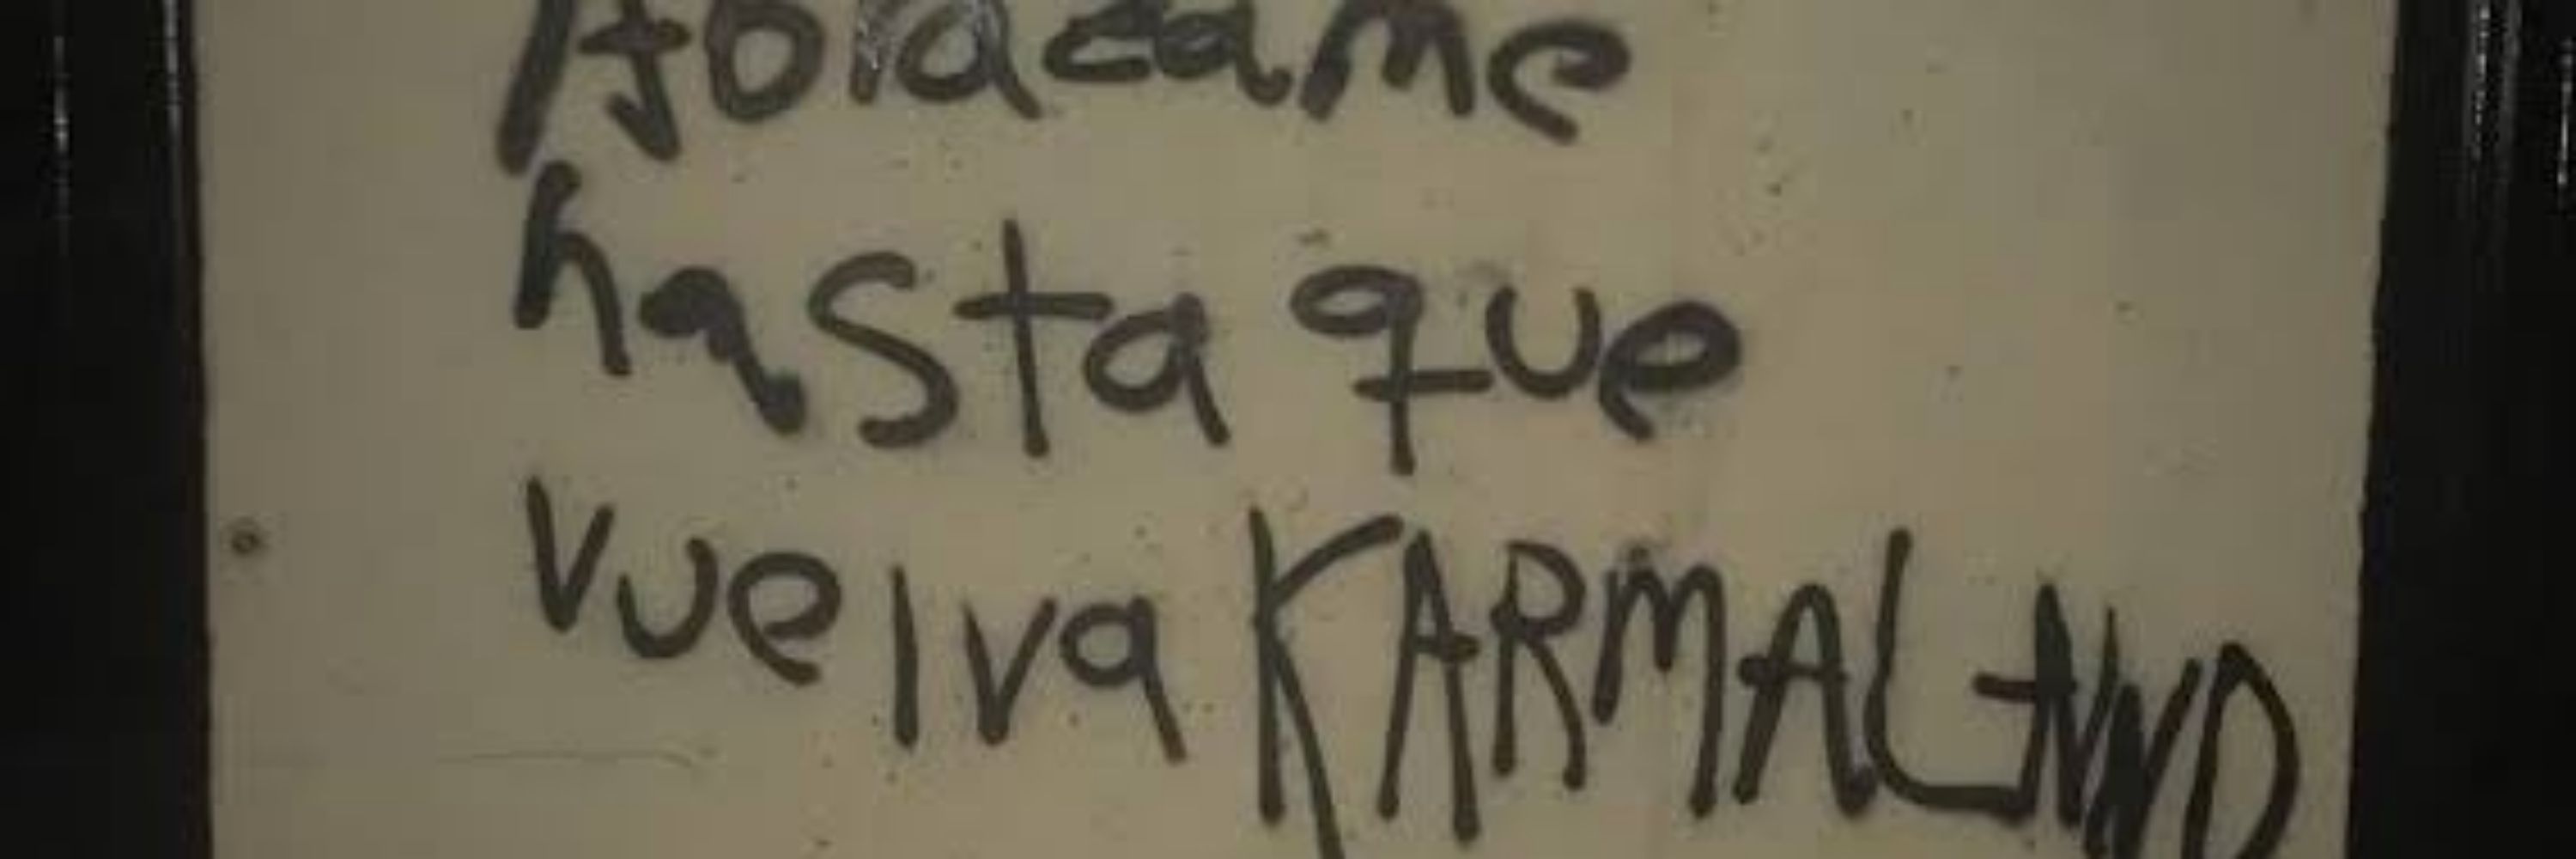 Abrazame
hasta que
vuelva KARMALAND